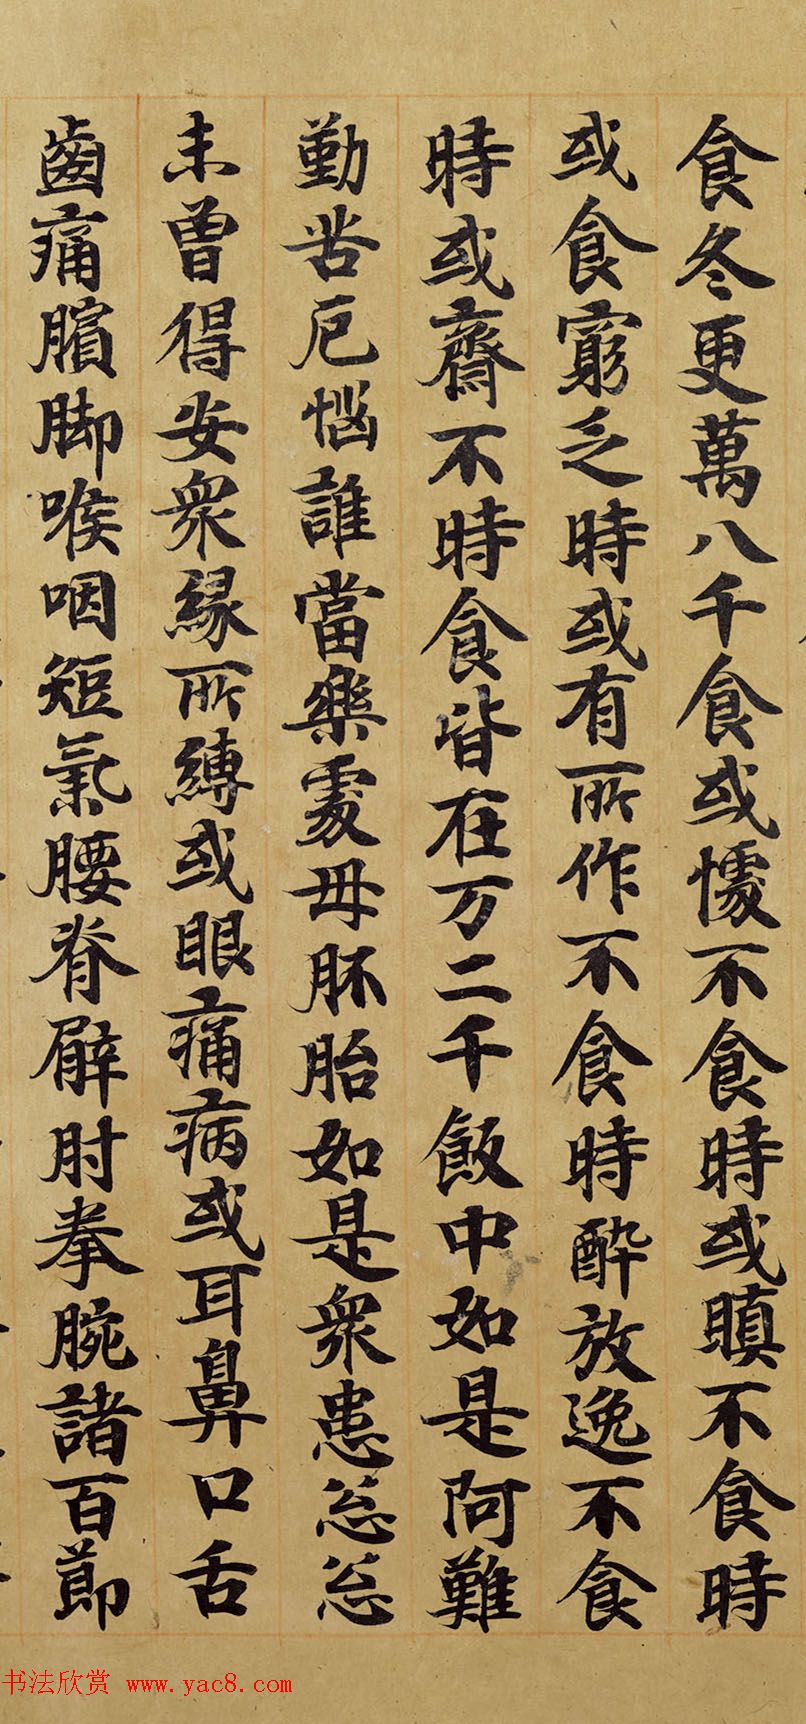 食冬更萬八千食或懅不食時或瞋不食時
或食窮乏時或有所作不食時醉放逸不食
時或齋不時食皆在万二千飯中如是阿難
勤苦厄惱誰當樂處母胚胎如是衆患忩忩
未曾得安衆緣所縛或眼痛病或耳鼻口舌
齒痛臏脚喉咽短氣腰脊臂肘拳腕諸百節
书法欣赏 www.yac8.com